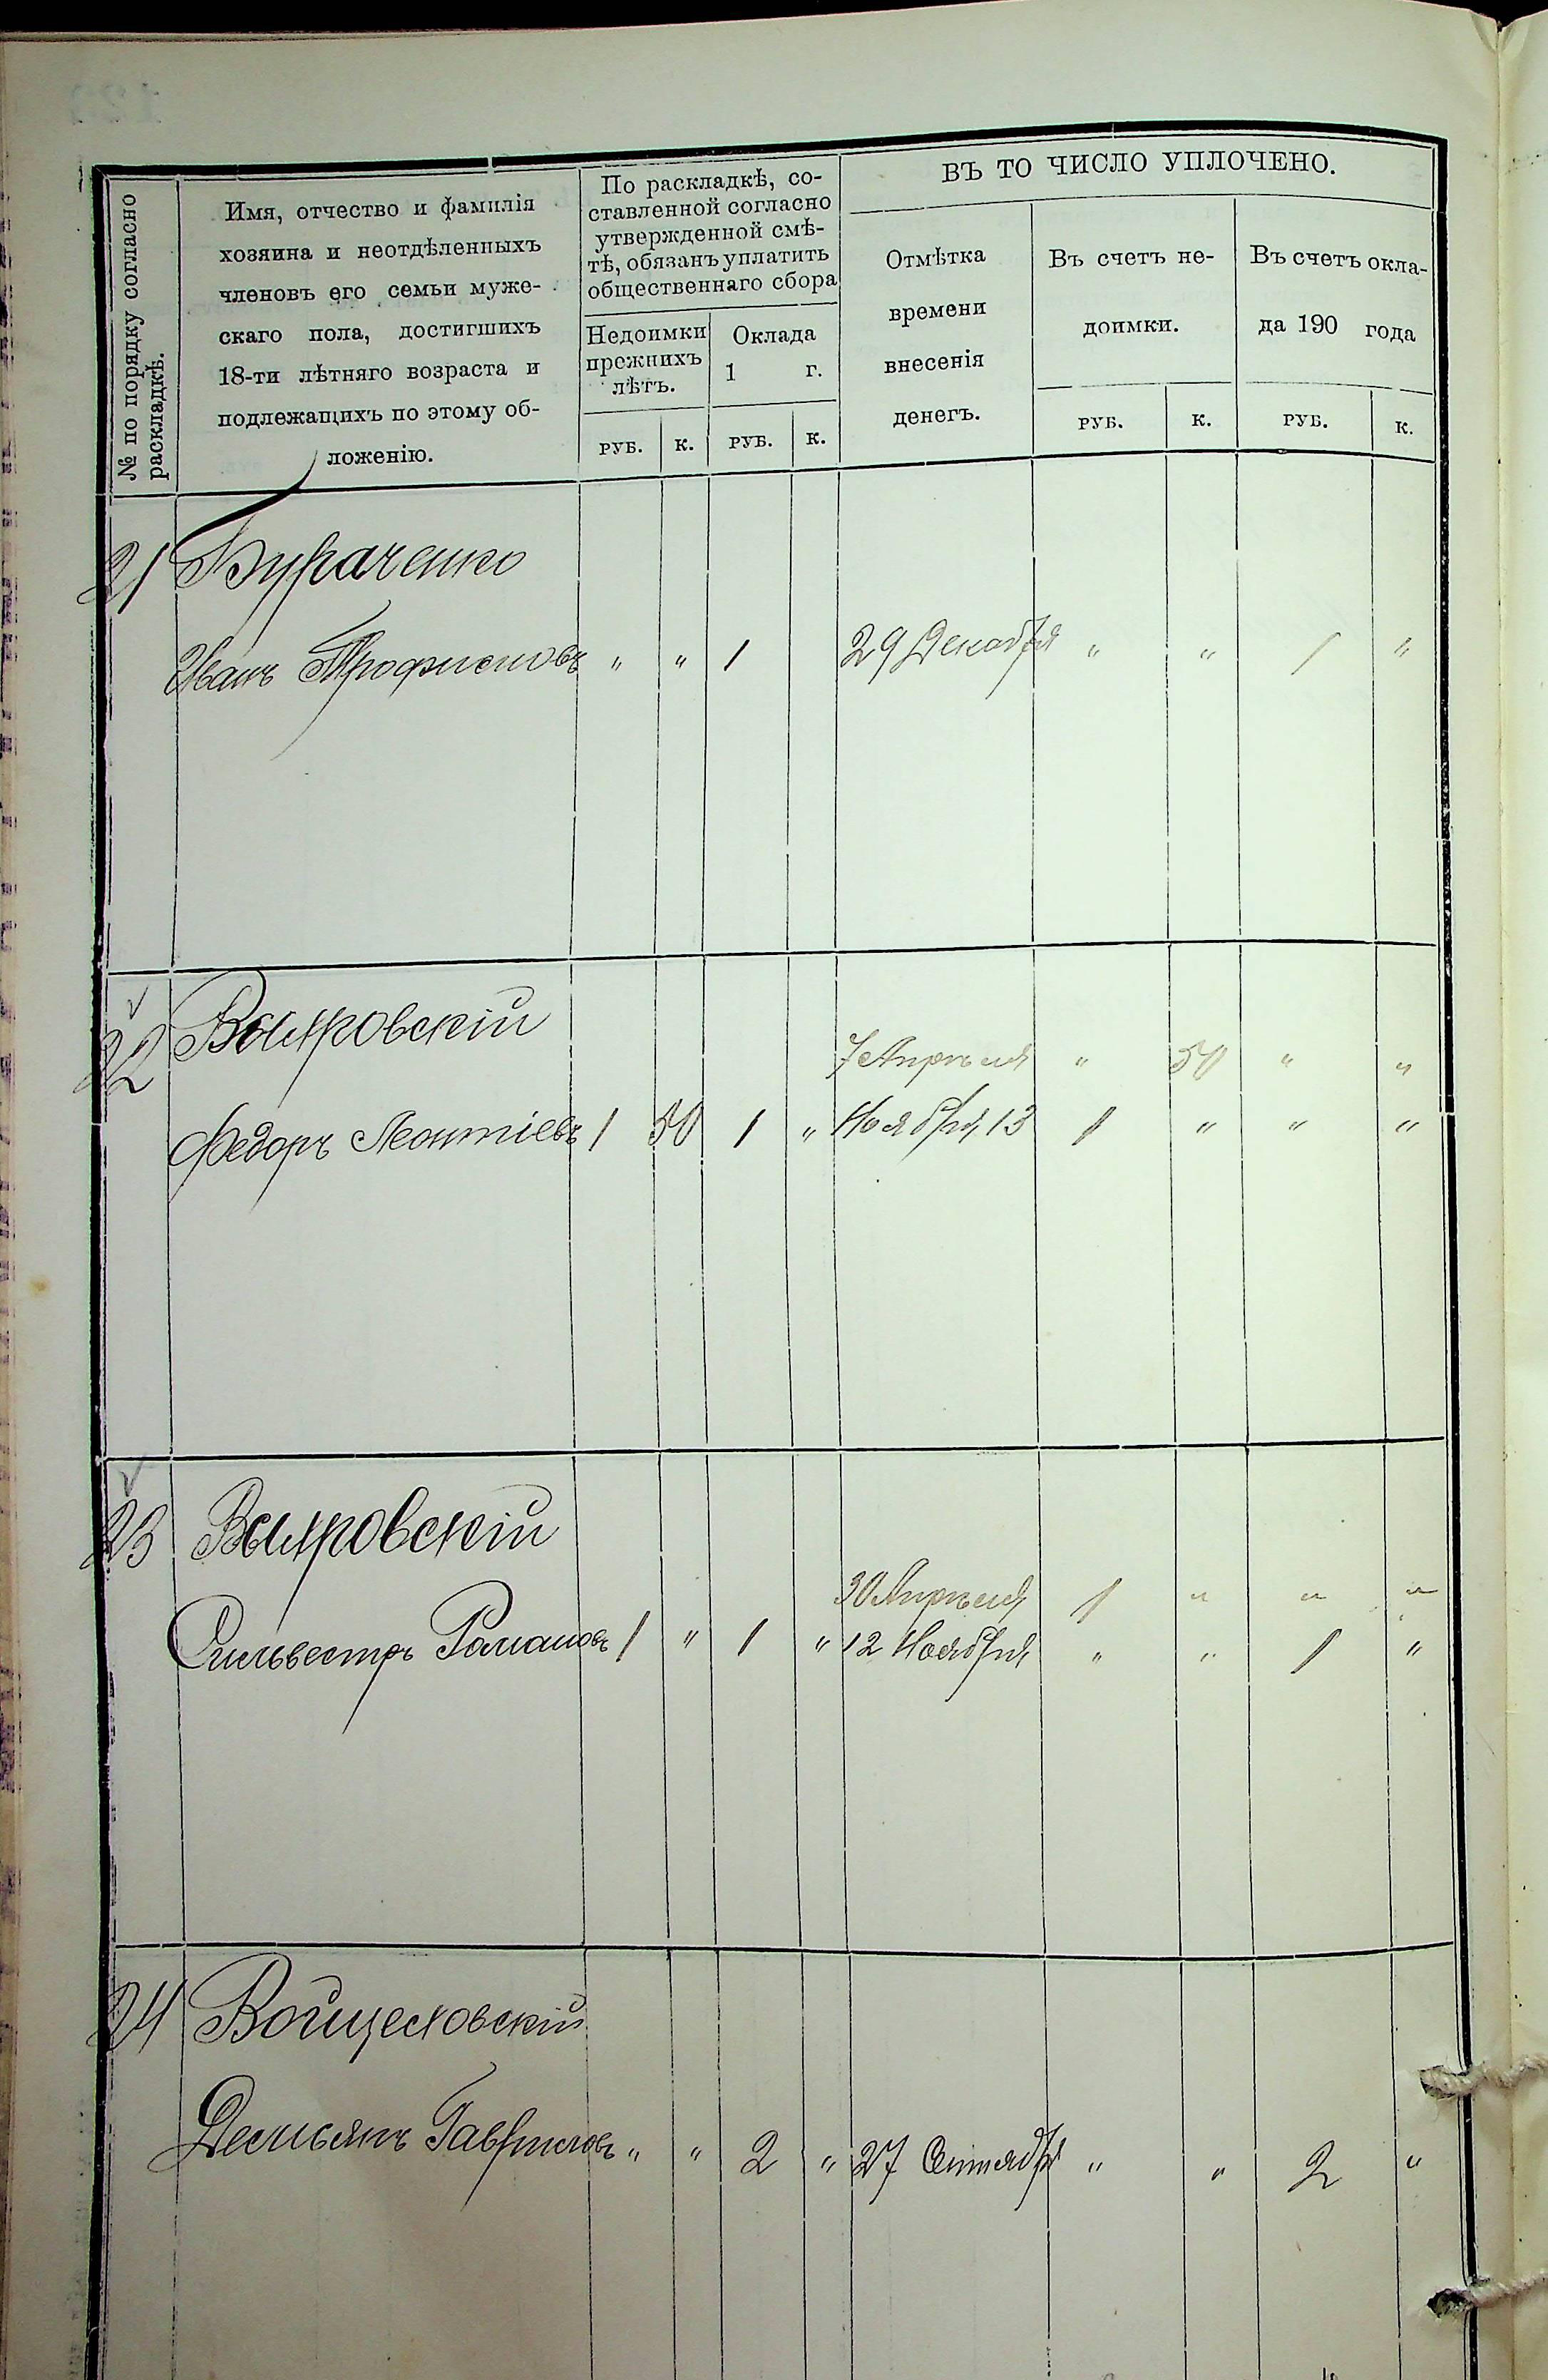 ВЪ ТО ЧИСЛО УПЛОЧЕНО.
№ по порядку согласно
раскладкѣ.
Имя, отчество и фамилія
хозяина и неотдѣленныхъ
членовъ его семьи муже-
скаго пола, достигшихъ
18-ти лѣтняго возраста и
подлежащихъ по этому об-
ложенію.
По раскладкѣ, со-
ставленной согласно
утвержденной смѣ-
тѣ, обязанъ уплатить
общественнаго сбора
Недоимки
прежнихъ
лѣтъ.
Оклада
1 г.
Отмѣтка
времени
внесенія
денегъ.
Въ счетъ не-
доимки.
Въ счетъ окла-
да 190 года
РУБ. К. РУБ. К. РУБ. К. РУБ. К.
21 Бураченко
Иванъ Трофимовъ " " 1 29 Декабря " " 1 "
22 Выхровскій
7 Апрѣля " 50 " "
Федоръ Леонтіевъ 1 50 1 " Ноября 13 1 " " "
23 Выхровскій
30 Апрѣля 1 " " "
Сильвестръ Романовъ 1 " 1 " 12 Ноября " " 1 "
24 Войцеховскій
Демьянъ Гавриловъ " " 2 " 27 Сентября " " 2 "